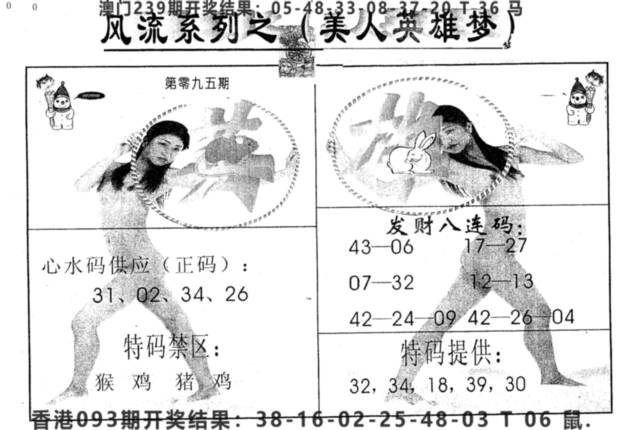 澳门239期开奖结果：05-48-33-08-37-20 T 36 马
风流系列之（美人英雄梦）
第零九五期
英
心水码供应（正码）：
31、02、34、26
特码禁区：
猴 鸡 猪 鸡
发财八连码：
43—06 17—27
07—32 12—13
42—24—09 42—26—04
特码提供：
32, 34, 18, 39, 30
香港093期开奖结果：38-16-02-25-48-03 T 06 鼠.